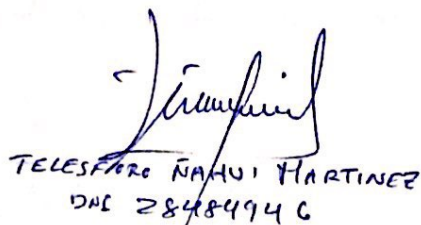 TELESFORO ÑAHUI MARTINEZ
DNI 28484946